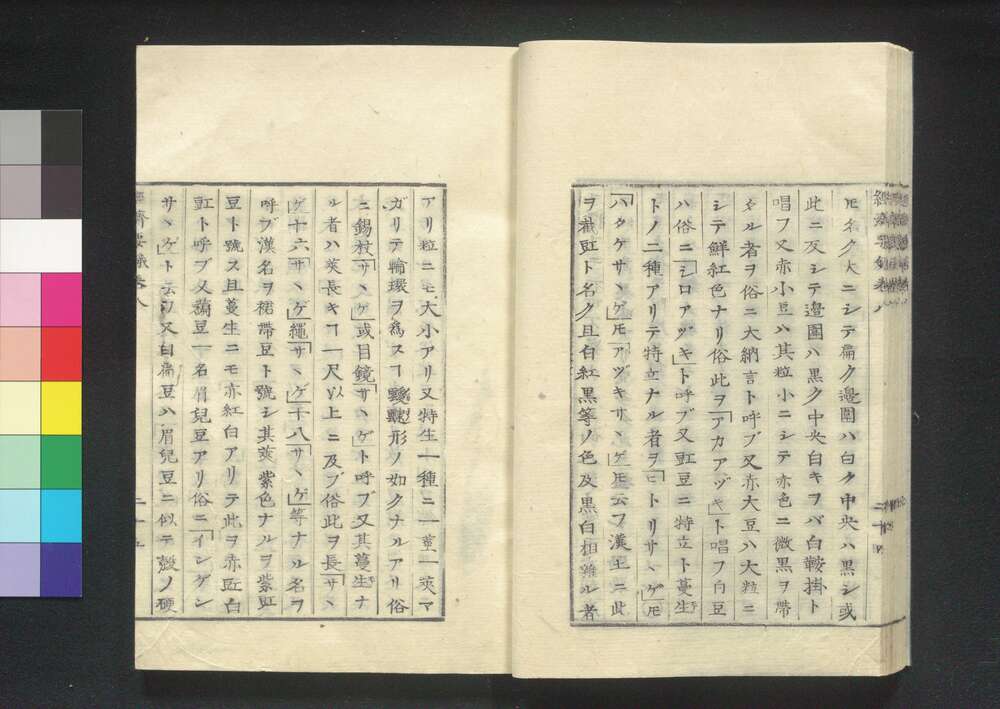 圧名ク大ニシテ扁ク邊圍ハ白ク中央ハ黒シ或
此ニ反シテ邊圍ハ黒ク中央白キヲバ白鞍掛ト
唱フ又赤小豆ハ其粒小ニシテ赤色ニ微黒ヲ帶
タル者ヲ俗ニ大納言ト呼ブ又赤大豆ハ大粒ニ
シテ鮮紅色ナリ俗此ヲ「アカアヅキ」ト唱フ白豆
ハ俗ニ「シロアヅキ」ト呼ブ又豇豆ニ特立ト蔓生
トノ二種アリテ特立ナル者ヲ「ヒトリサヽゲ」𪜈
「ハタケサヽゲ」𪜈「アヅキサヽゲ」𪜈云フ漢土ニ此
ヲ𧈅豇ト名ク且白紅黒等ノ色及黒白相雜ル者
アリ粒ニモ大小アリ又特生一種ニ一莖一莢マ
ガリテ輪環ヲ為スヿ形ノ如クナルアリ俗
ニ錫杖「サヽゲ」或目鏡「サヽゲ」ト呼ブ又其蔓生ナ
ル者ハ莢長キヿ一尺以上ニ及ブ俗此ヲ長「サヽ
ゲ」十六「サヽゲ」繩「サヽゲ」十八「サヽゲ」等ナル名ヲ
呼ブ漢名ヲ裙帶豆ト號シ其莢紫色ナルヲ紫豇
豆ト號ス且蔓生ニモ赤紅白アリテ此ヲ赤豇白
豇ト呼ブ又藊豆一名眉兒豆アリ俗ニ「インゲン
サヽゲ」ト云フ又白扁豆ハ眉兒豆ニ似テ殻ノ硬